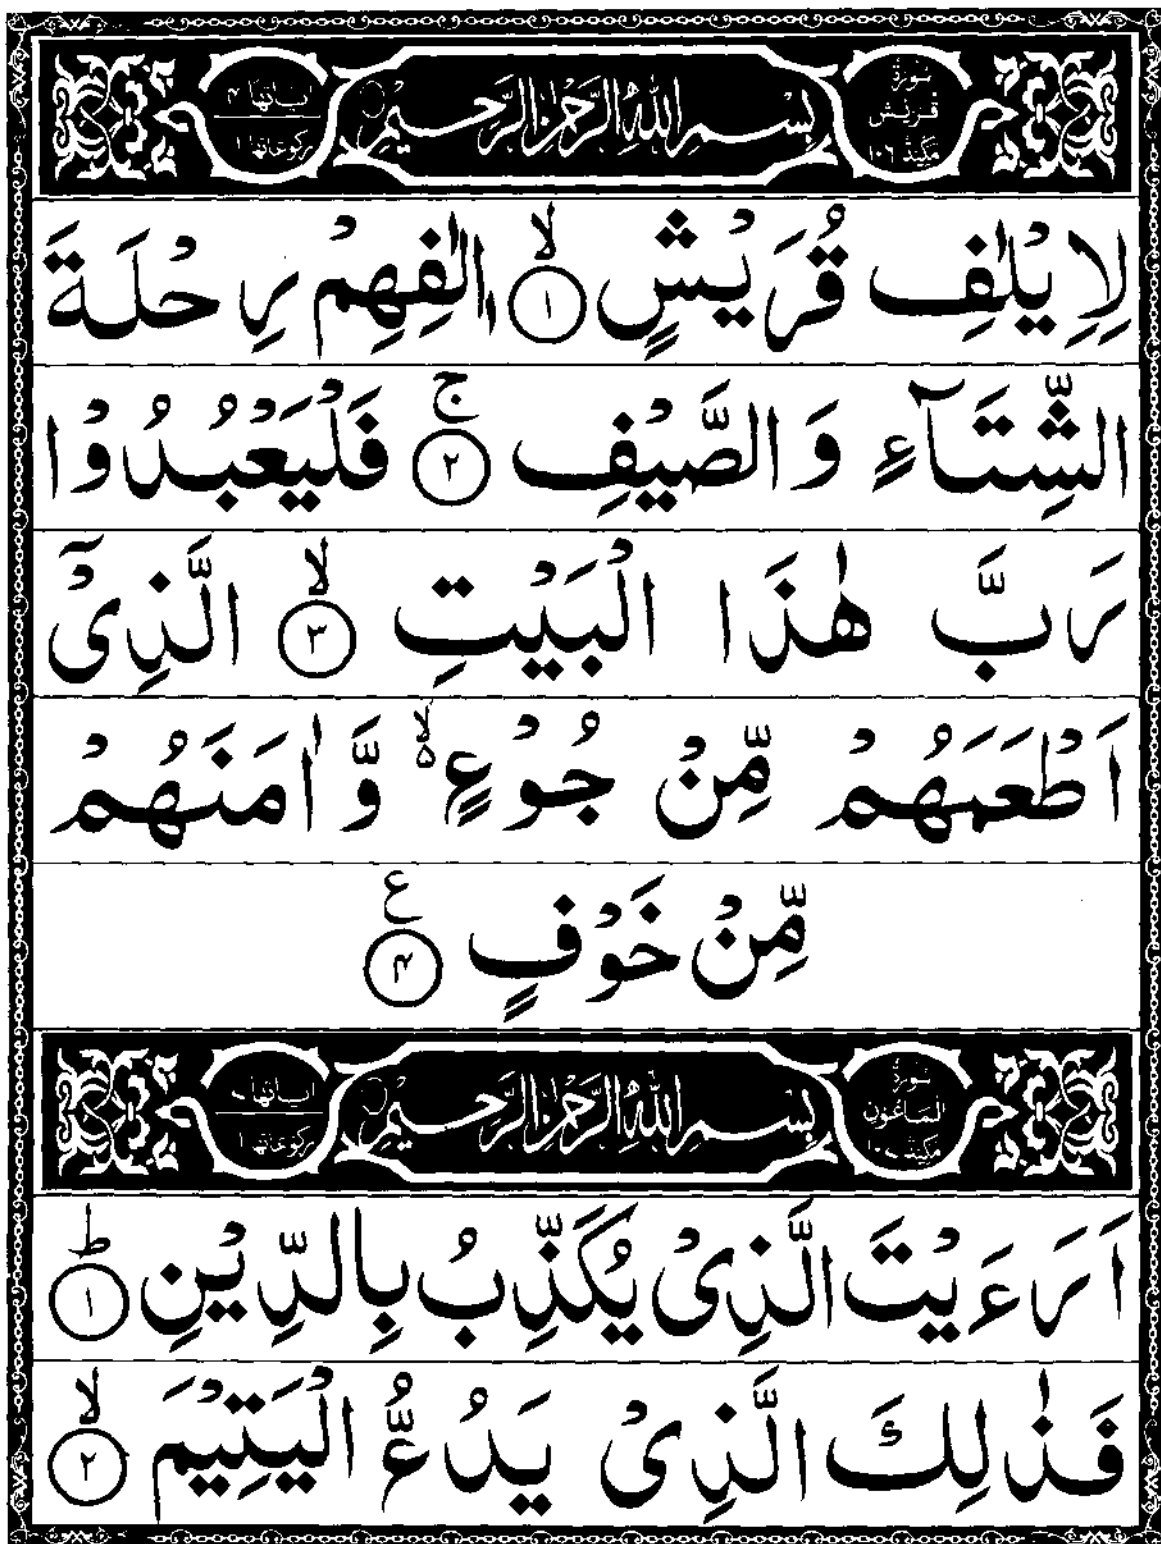 سُوْرَةُ قُرَيْشٍ مَكِّيَّةٌ ١٠٦
بِسْمِ اللهِ الرَّحْمٰنِ الرَّحِيْمِ
اٰيَاتُهَا ٤ رُكُوْعَاتُهَا ١
لِاِيْلٰفِ قُرَيْشٍ ۙ﴿١﴾ اٖلٰفِهِمْ رِحْلَةَ
الشِّتَآءِ وَالصَّيْفِ ۚ﴿٢﴾ فَلْيَعْبُدُوْا
رَبَّ هٰذَا الْبَيْتِ ۙ﴿٣﴾ الَّذِىْٓ
اَطْعَمَهُمْ مِّنْ جُوْعٍ ۙ۬ وَّاٰمَنَهُمْ
مِّنْ خَوْفٍ ﴿٤﴾ ع
سُوْرَةُ الْمَاعُوْنِ مَكِّيَّةٌ ١٠٧
بِسْمِ اللهِ الرَّحْمٰنِ الرَّحِيْمِ
اٰيَاتُهَا ٧ رُكُوْعَاتُهَا ١
اَرَءَيْتَ الَّذِىْ يُكَذِّبُ بِالدِّيْنِ ؕ﴿١﴾
فَذٰلِكَ الَّذِىْ يَدُعُّ الْيَتِيْمَ ۙ﴿٢﴾